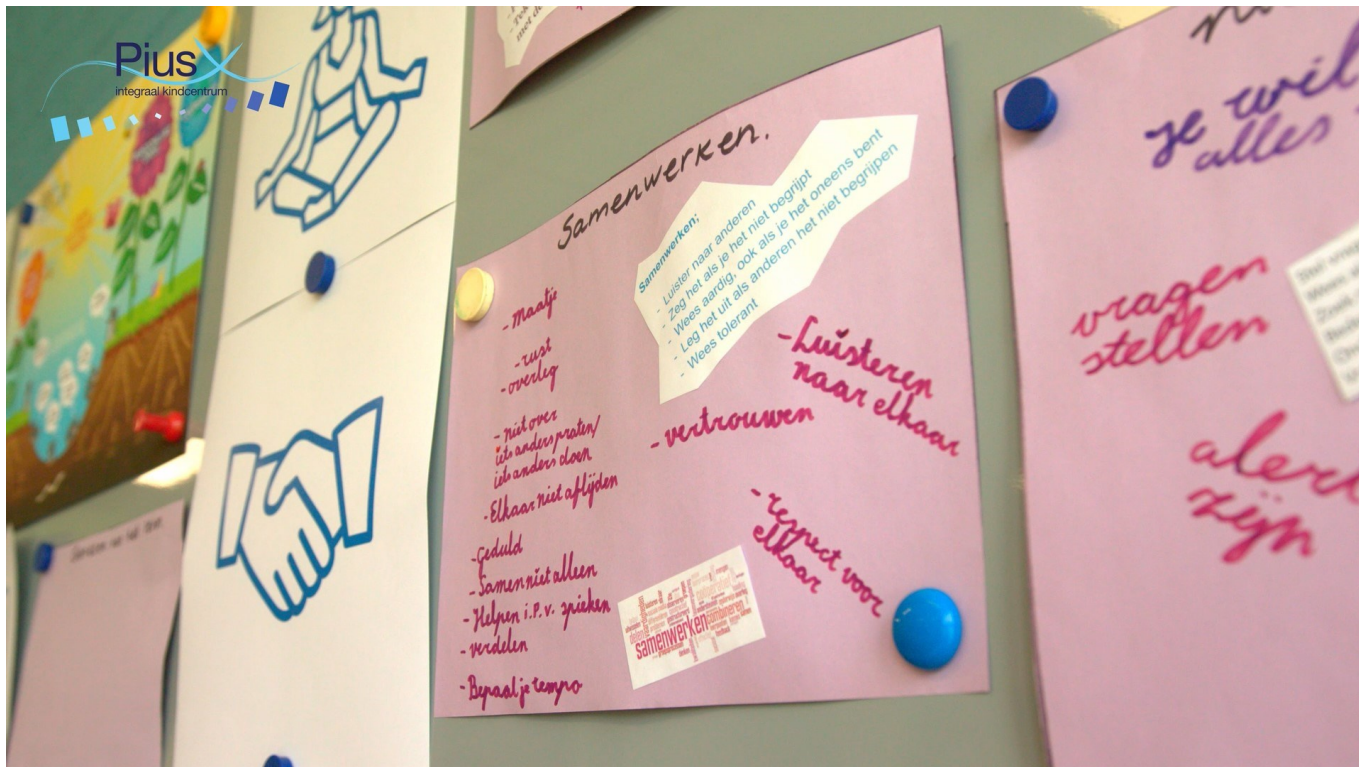 Pius X
integraal kindcentrum
Samenwerken.
Samenwerken:
- Luister naar anderen
- Zeg het als je het niet begrijpt
- Wees aardig, ook als je het oneens bent
- Leg het uit als anderen het niet begrijpen
- Wees tolerant
- maatje
- rust
- overleg
- niet over
iets anders praten/
iets anders doen
- Elkaar niet aflijden
- Geduld
- Samen niet alleen
- Helpen i.p.v. spieken
- verdelen
- Bepaal je tempo
- Luisteren
naar elkaar
- vertrouwen
- respect voor
elkaar
samenwerken
combineren
je wil
alles
vragen
stellen
alert
zijn